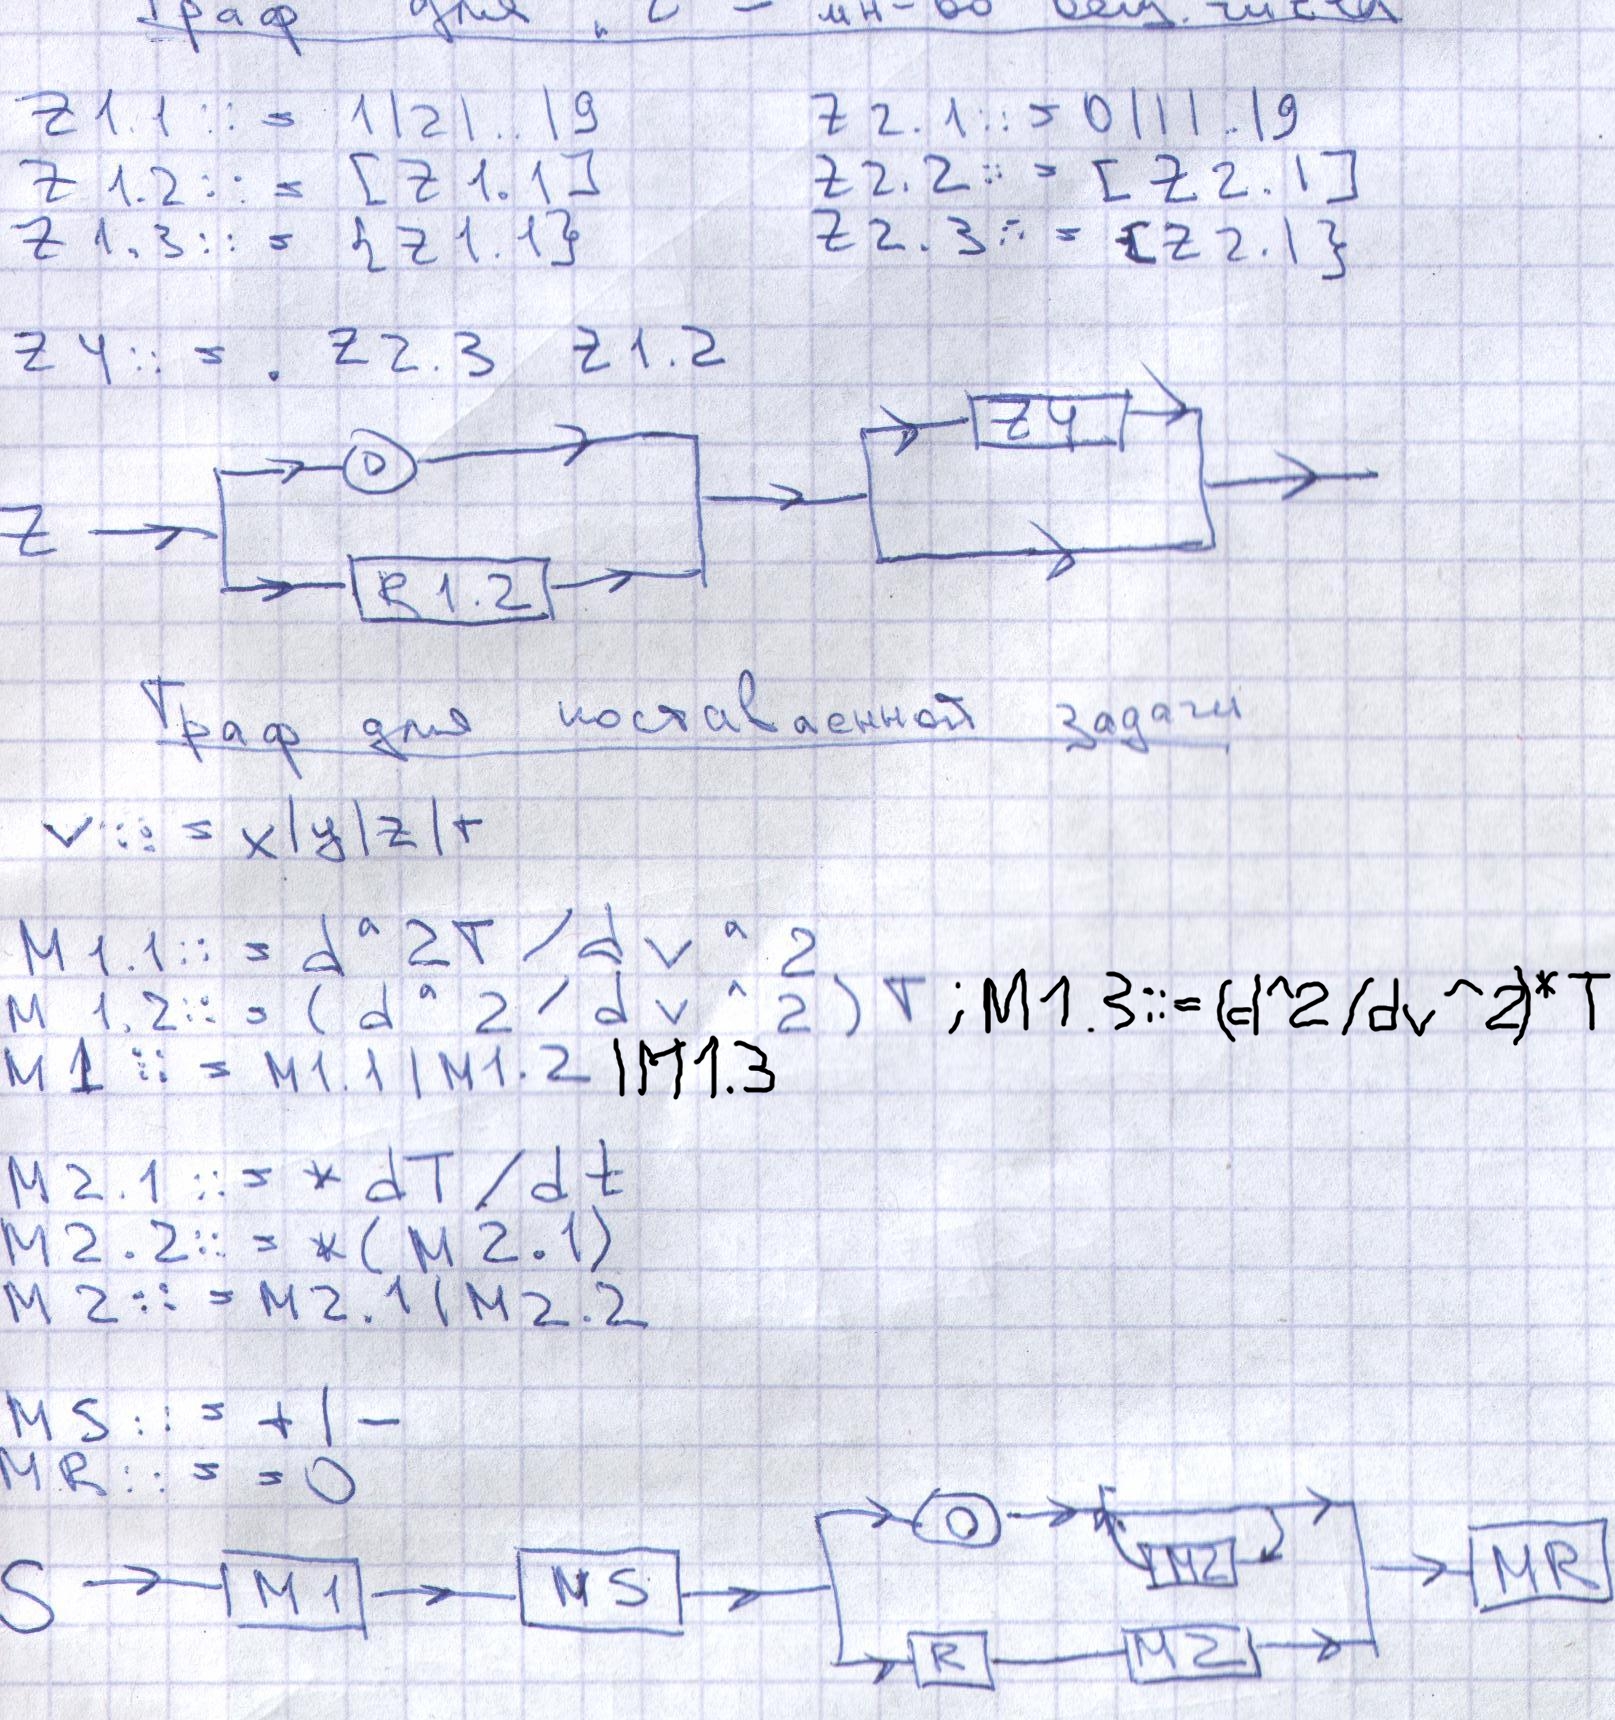 Граф для "Z - мн-во вещ. числа
Z1.1 ::= 1|2|..|9
Z2.1 ::= 0|1|..|9
Z1.2 ::= [Z1.1]
Z2.2 ::= [Z2.1]
Z1.3 ::= {Z1.1}
Z2.3 ::= {Z2.1}
Z4 ::= . Z2.3 Z1.2
Z4
0
Z
R1.2
Граф для поставленной задачи
v ::= x|y|z|t
M1.1 ::= d^2T/dv^2
M1.2 ::= (d^2/dv^2)T ; M1.3 ::= (d^2/dv^2)*T
M1 ::= M1.1|M1.2|M1.3
M2.1 ::= *dT/dt
M2.2 ::= *(M2.1)
M2 ::= M2.1|M2.2
MS ::= +|-
MR ::= =0
0
M2
S M1 MS MR
R M2